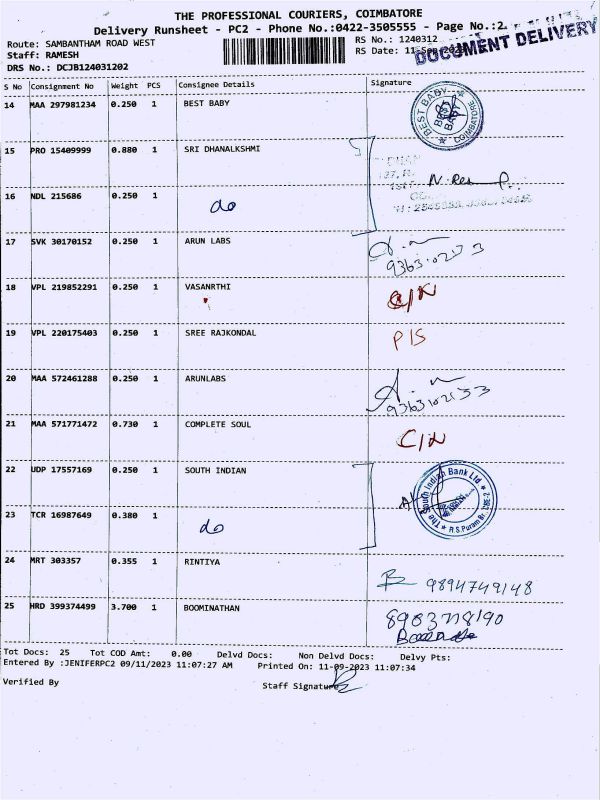 THE PROFESSIONAL COURIERS, COIMBATORE
Delivery Runsheet - PC2 - Phone No.:0422-3505555 - Page No.:2
Route: SAMBANTHAM ROAD WEST RS No.: 1240312
Staff: RAMESH RS Date: 11-Sep-2023
DOCUMENT DELIVERY
DRS No.: DCJB124031202
S No Consignment No Weight PCS Consignee Details Signature
14 MAA 297981234 0.250 1 BEST BABY
BEST BABY COIMBATORE
15 PRO 15409999 0.880 1 SRI DHANALKSHMI
16 NDL 215686 0.250 1 do
17 SVK 30170152 0.250 1 ARUN LABS
18 VPL 219852291 0.250 1 VASANRTHI
19 VPL 220175403 0.250 1 SREE RAJKONDAL P/S
20 MAA 572461288 0.250 1 ARUNLABS
9363102133
21 MAA 571771472 0.730 1 COMPLETE SOUL
22 UDP 17557169 0.250 1 SOUTH INDIAN
The South Indian Bank Ltd R.S.Puram Br. CBE-2
23 TCR 16987649 0.380 1 do
24 MRT 303357 0.355 1 RINTIYA
9894749148
25 HRD 399374499 3.700 1 BOOMINATHAN
Tot Docs: 25 Tot COD Amt: 0.00 Delvd Docs: Non Delvd Docs: Delvy Pts:
Entered By :JENIFERPC2 09/11/2023 11:07:27 AM Printed On: 11-09-2023 11:07:34
Verified By Staff Signature